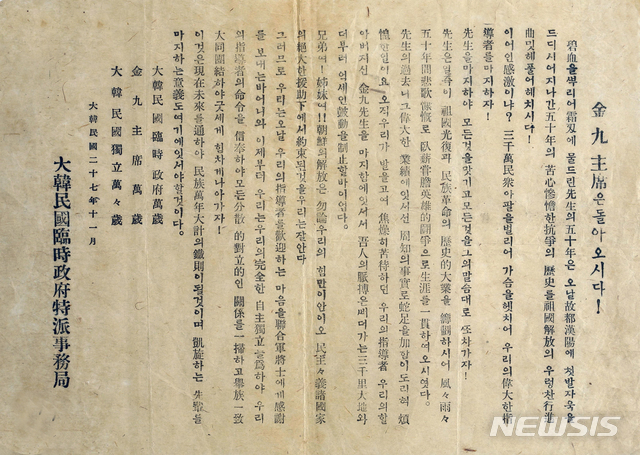 金九主席은돌아오시다!
碧血을뿌리어霜刄에 물드린先生의五十年은 오날故都漢陽에 첫발자욱을
드디시어지나간五十年의 苦心慘憺한抗爭의 歷史를祖國解放의 우렁찬行進
曲밋헤풀어헤치시다!
이어인感激이냐? 三千萬民衆아팔을벌리어 가슴을헷치어 우리의偉大한指
導者를마지하자!
先生을마지하야 모든것을맛기고모든것을그의말슴대로 쪼차가자!
先生은일즉이 祖國光復과 民族革命의 歷史的大業을 하시어 風々雨々
五十年間悲歌慷慨로 臥薪嘗膽英雄的鬪爭으로生涯를一貫하여오시엿다.
先生의過去며그偉大한 業績에잇서선 周知의事實로蛇足을加함이도리혀 煩
한일이요오직우리가 발을고여 焦燥히苦待하던 우리의指導者 우리의할
아버지신 金九先生을마지함에잇서서 吾人의脈搏은 三千里大地와
더부러 억세인鼓動을制止할바이업다.
兄弟여! 姉妹여!! 朝鮮의解放은 勿論우리의 힘만이안이오 民主々義諸國家
의絕大한援助下에서約束된것을우리는잘안다
그러므로 우리는오날 우리의指導者를歡迎하는 마음을聯合軍將士에게感謝
를 보내는바이니와 이제부터 우리는우리의完全한 自主獨立을爲하야 우리
의指導者의命令을 信奉하야모든分散的 對立的인 關係를一掃하고擧族一致
大同團結하야굿세게 힘차게나아가자!
이것은現在未來를通하야 民族萬年大計의鐵則이될것이며 凱旋하는 先輩를
마지하는意義도여기에잇서야할것이다.
大韓民國臨時政府萬歲
金九主席萬歲
大韓民國獨立萬々歲
大韓民國二十七年十一月
大韓民國臨時政府特派事務局
NEWSIS